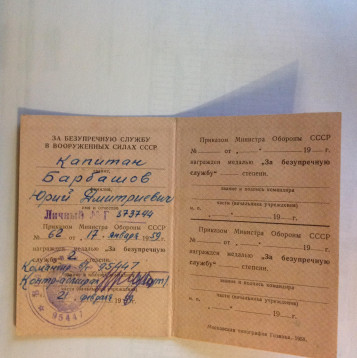 ЗА БЕЗУПРЕЧНУЮ СЛУЖБУ
В ВООРУЖЕННЫХ СИЛАХ СССР
Капитан
звание,
Барбашов
фамилия,
Юрий Дмитриевич
имя и отчество
Личный № Г 573744
Приказом Министра Обороны СССР
№ 62 от 17 январь 19
награжден медалью „За безупречную
службу“ 2 степени.
95447
Контр-адмирал
21 февраль 19 г.
95447
Приказом Министра Обороны СССР
№ от „ “ 19 г.
награжден медалью „За безупречную
службу“ степени.
звание и подпись командира
м. п. часть (начальник учреждения)
„ “ 19 г.
Приказом Министра Обороны СССР
№ от „ “ 19 г.
награжден медалью „За безупречную
службу“ степени.
звание и подпись командира
м. п. часть (начальник учреждения)
„ “ 19 г.
Московская типография Гознака.